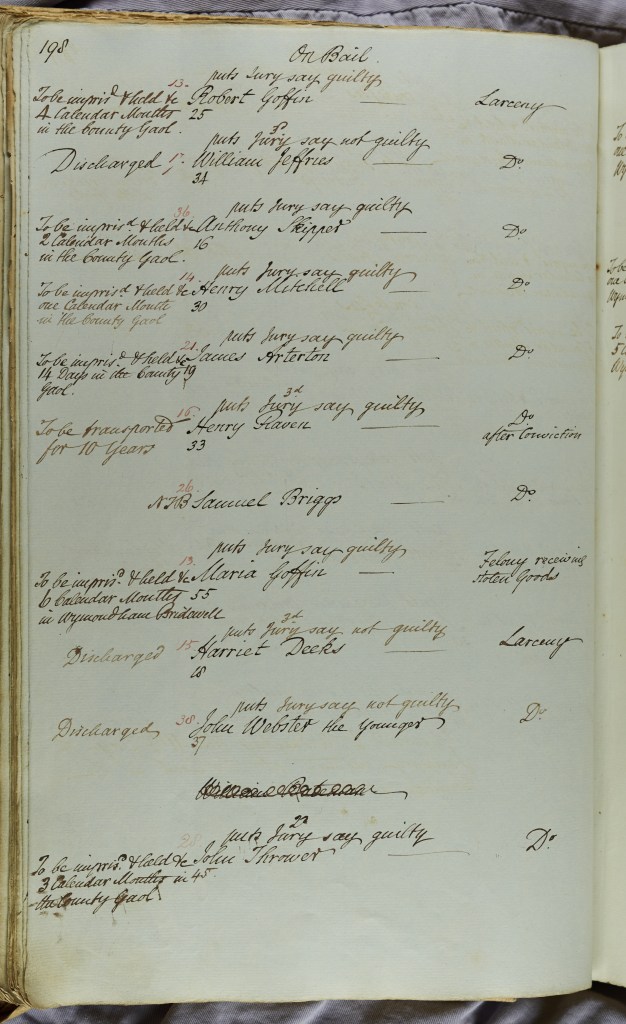 198
On Bail
puts Jury say guilty
To be impris.d & held &c 13. Robert Goffin — Larceny
4 Calendar Months 25
in the County Gaol.
puts Jury 3d say not guilty
Discharged William Jeffries — Do.
34
puts Jury say guilty
To be impris.d & held &c 36 Anthony Skipper — Do.
2 Calendar Months 16
in the County Gaol.
puts Jury say guilty
To be impris.d & held &c 14. Henry Mitchell — Do.
one Calendar Month 30
in the County Gaol
puts Jury say guilty
To be impris.d & held &c 21. James Arterton — Do.
14 Days in the County 19
Gaol.
puts Jury 3d say guilty
To be transported 16. Henry Raven — Do.
for 10 Years 33 after Conviction
26.
NTB Samuel Briggs — Do.
puts Jury say guilty
To be impris.d & held &c 13. Maria Goffin — Felony receiving
6 Calendar Months 55 stolen Goods
in Wymondham Bridewell
puts Jury 3d say not guilty
Discharged 15. Harriet Deeks Larceny
18
puts Jury say not guilty
Discharged 38. John Webster the Younger Do.
37
puts Jury 2d say guilty
To be impris.d & held &c John Thrower — Do.
3 Calendar Months in 45
the County Gaol